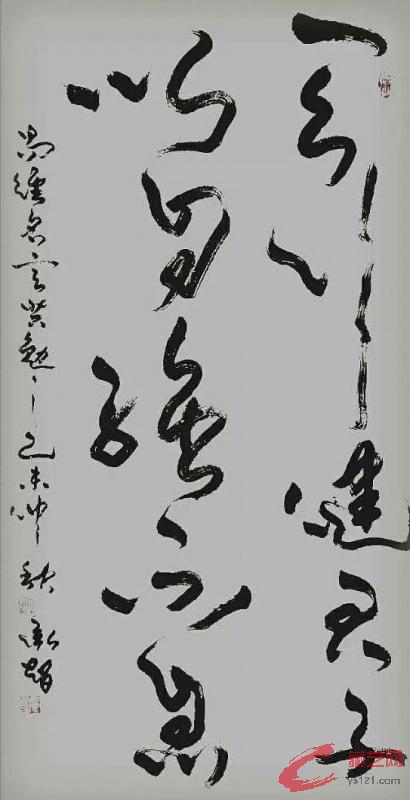 天行健君子
以自強不息
易經名言共勉之乙未仲秋
ys121.com